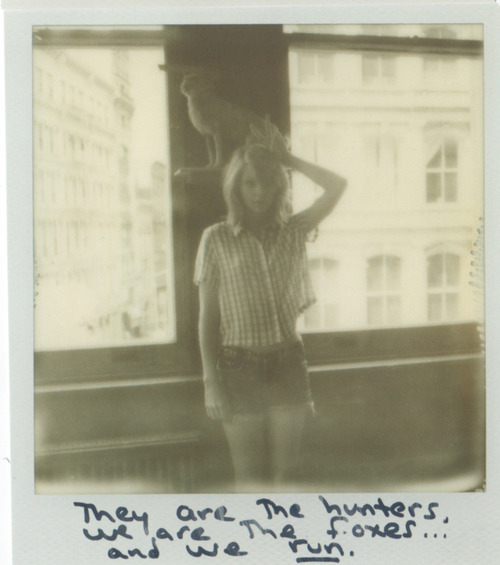 They are the hunters,
we are the foxes...
and we run.